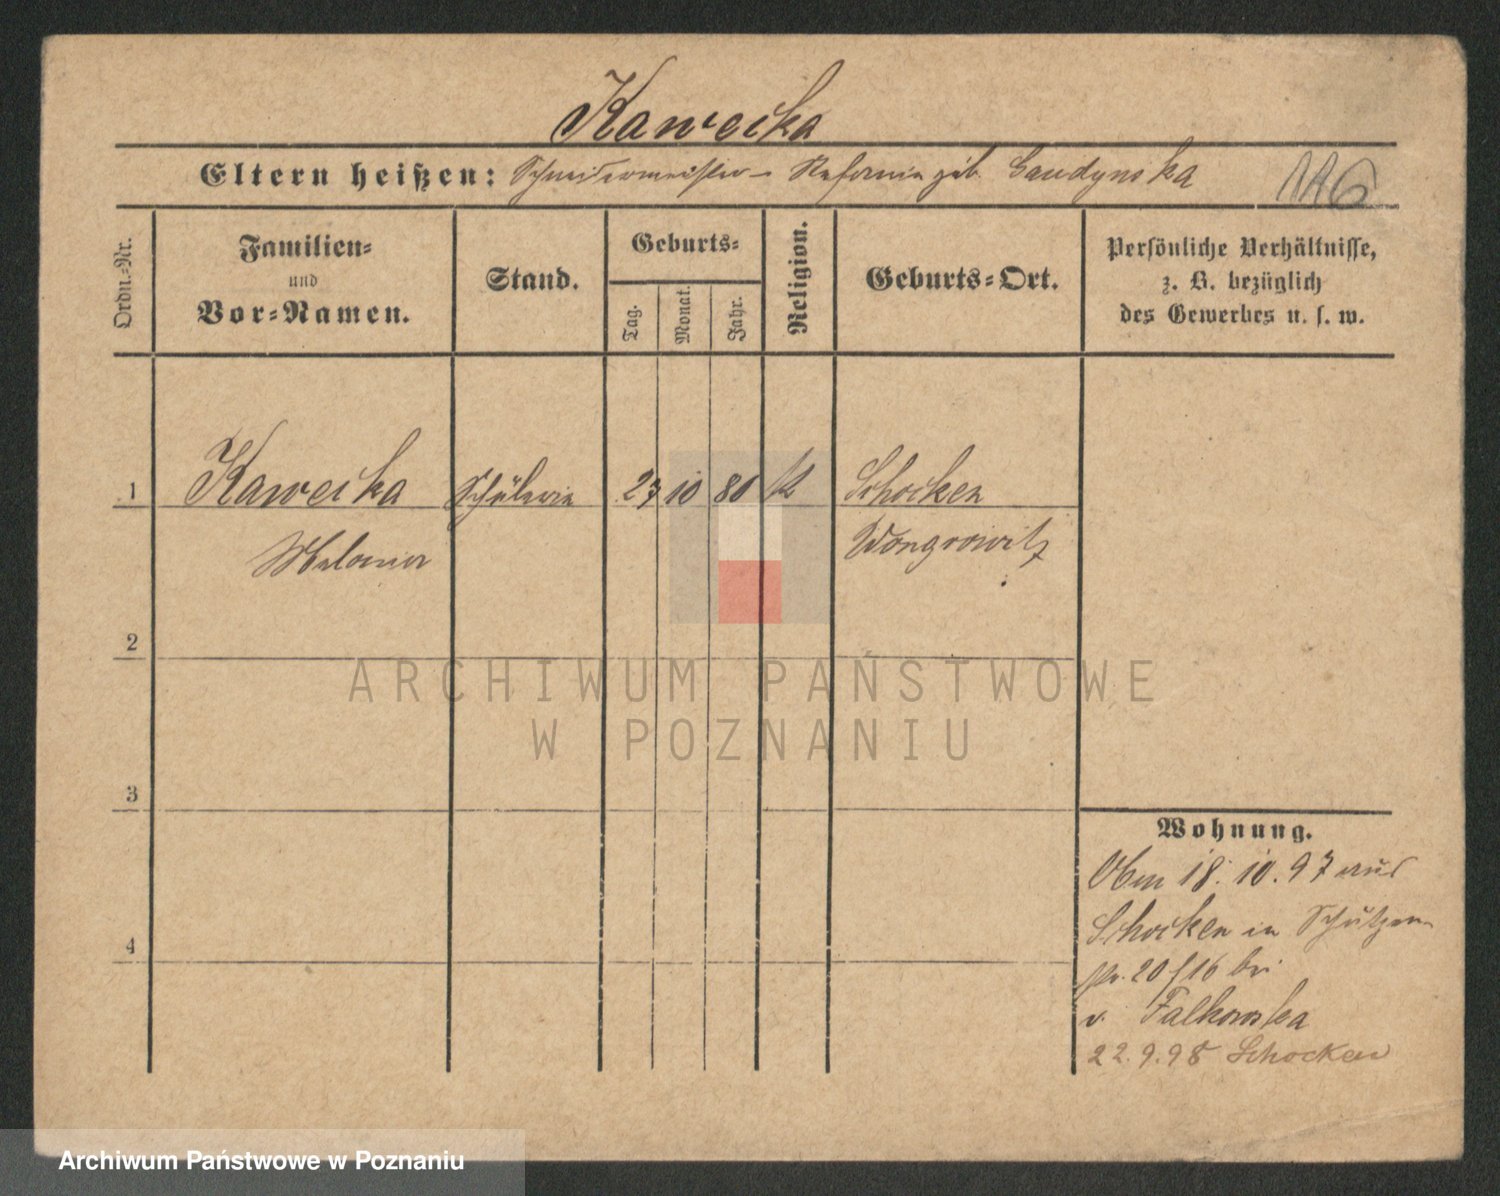 Kawecka
Eltern heißen: Schneidermeister – geb. Gaudynska
116
Ordn.-Nr.
Familien-
und
Vor-Namen.
Stand.
Geburts-
Tag.
Monat.
Jahr.
Religion.
Geburts-Ort.
Persönliche Verhältnisse,
z. B. bezüglich
des Gewerbes u. s. w.
1 Kawecka Schülerin 27 10 80 k Schocken
Melanie Wongrowitz
2
3
4
Wohnung.
18. 10. 97 aus
Schocken in Schützen-
str. 20 / 16 bei
v. Falkowska
22.9.98 Schocken
ARCHIWUM PAŃSTWOWE
W POZNANIU
Archiwum Państwowe w Poznaniu